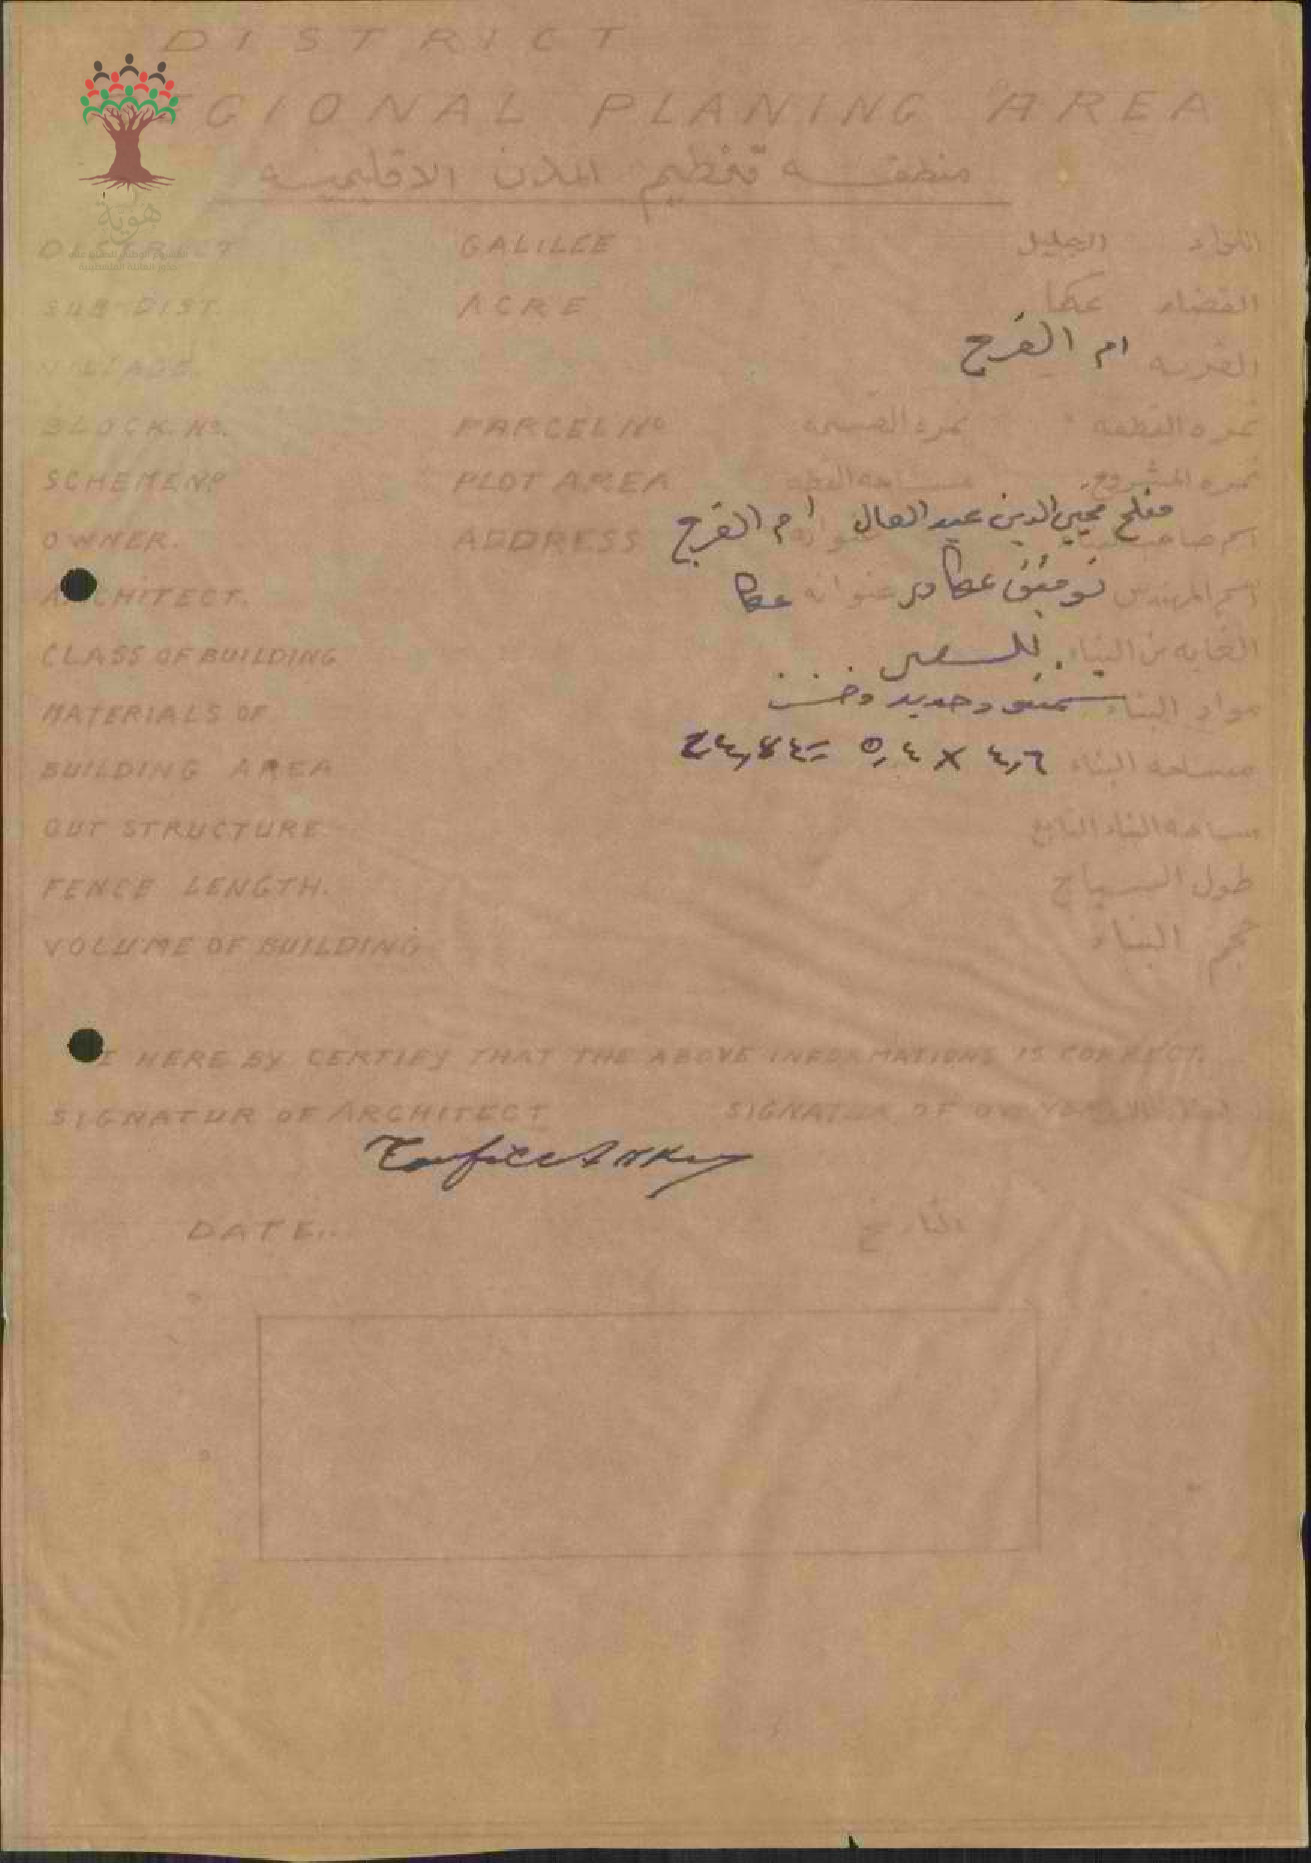 DISTRICT
REGIONAL PLANING AREA
منطقـــه تنظيم المدن الاقليميـــه
هوية
DISTRICT GALILEE اللواء الجليل
SUB-DIST. ACRE القضاء عكا
VILLAGE. القريه ام الفرج
BLOCK. No. PARCEL No نمره القطعه نمره القسيمه
SCHEME No PLOT AREA نمره المشروع مساحه القطعه
OWNER. ADDRESS اسم صاحب مفلح محيي الدين عبد العال ام الفرج
ARCHITECT. اسم المهندس توفيق عكاوي عنوانه عكا
CLASS OF BUILDING الغايه من البناء للسكن
MATERIALS OF مواد البناء سمنتو وحديد وخشب
BUILDING AREA مساحه البناء ٤,٦ × ٥,٤ = ٢٤,٨٤
OUT STRUCTURE مساحه البناء التابع
FENCE LENGTH. طول السياج
VOLUME OF BUILDING حجم البناء
I HERE BY CERTIFY THAT THE ABOVE INFORMATIONS IS CORRECT.
SIGNATUR OF ARCHITECT SIGNATUR OF OWNER
DATE.. التاريخ